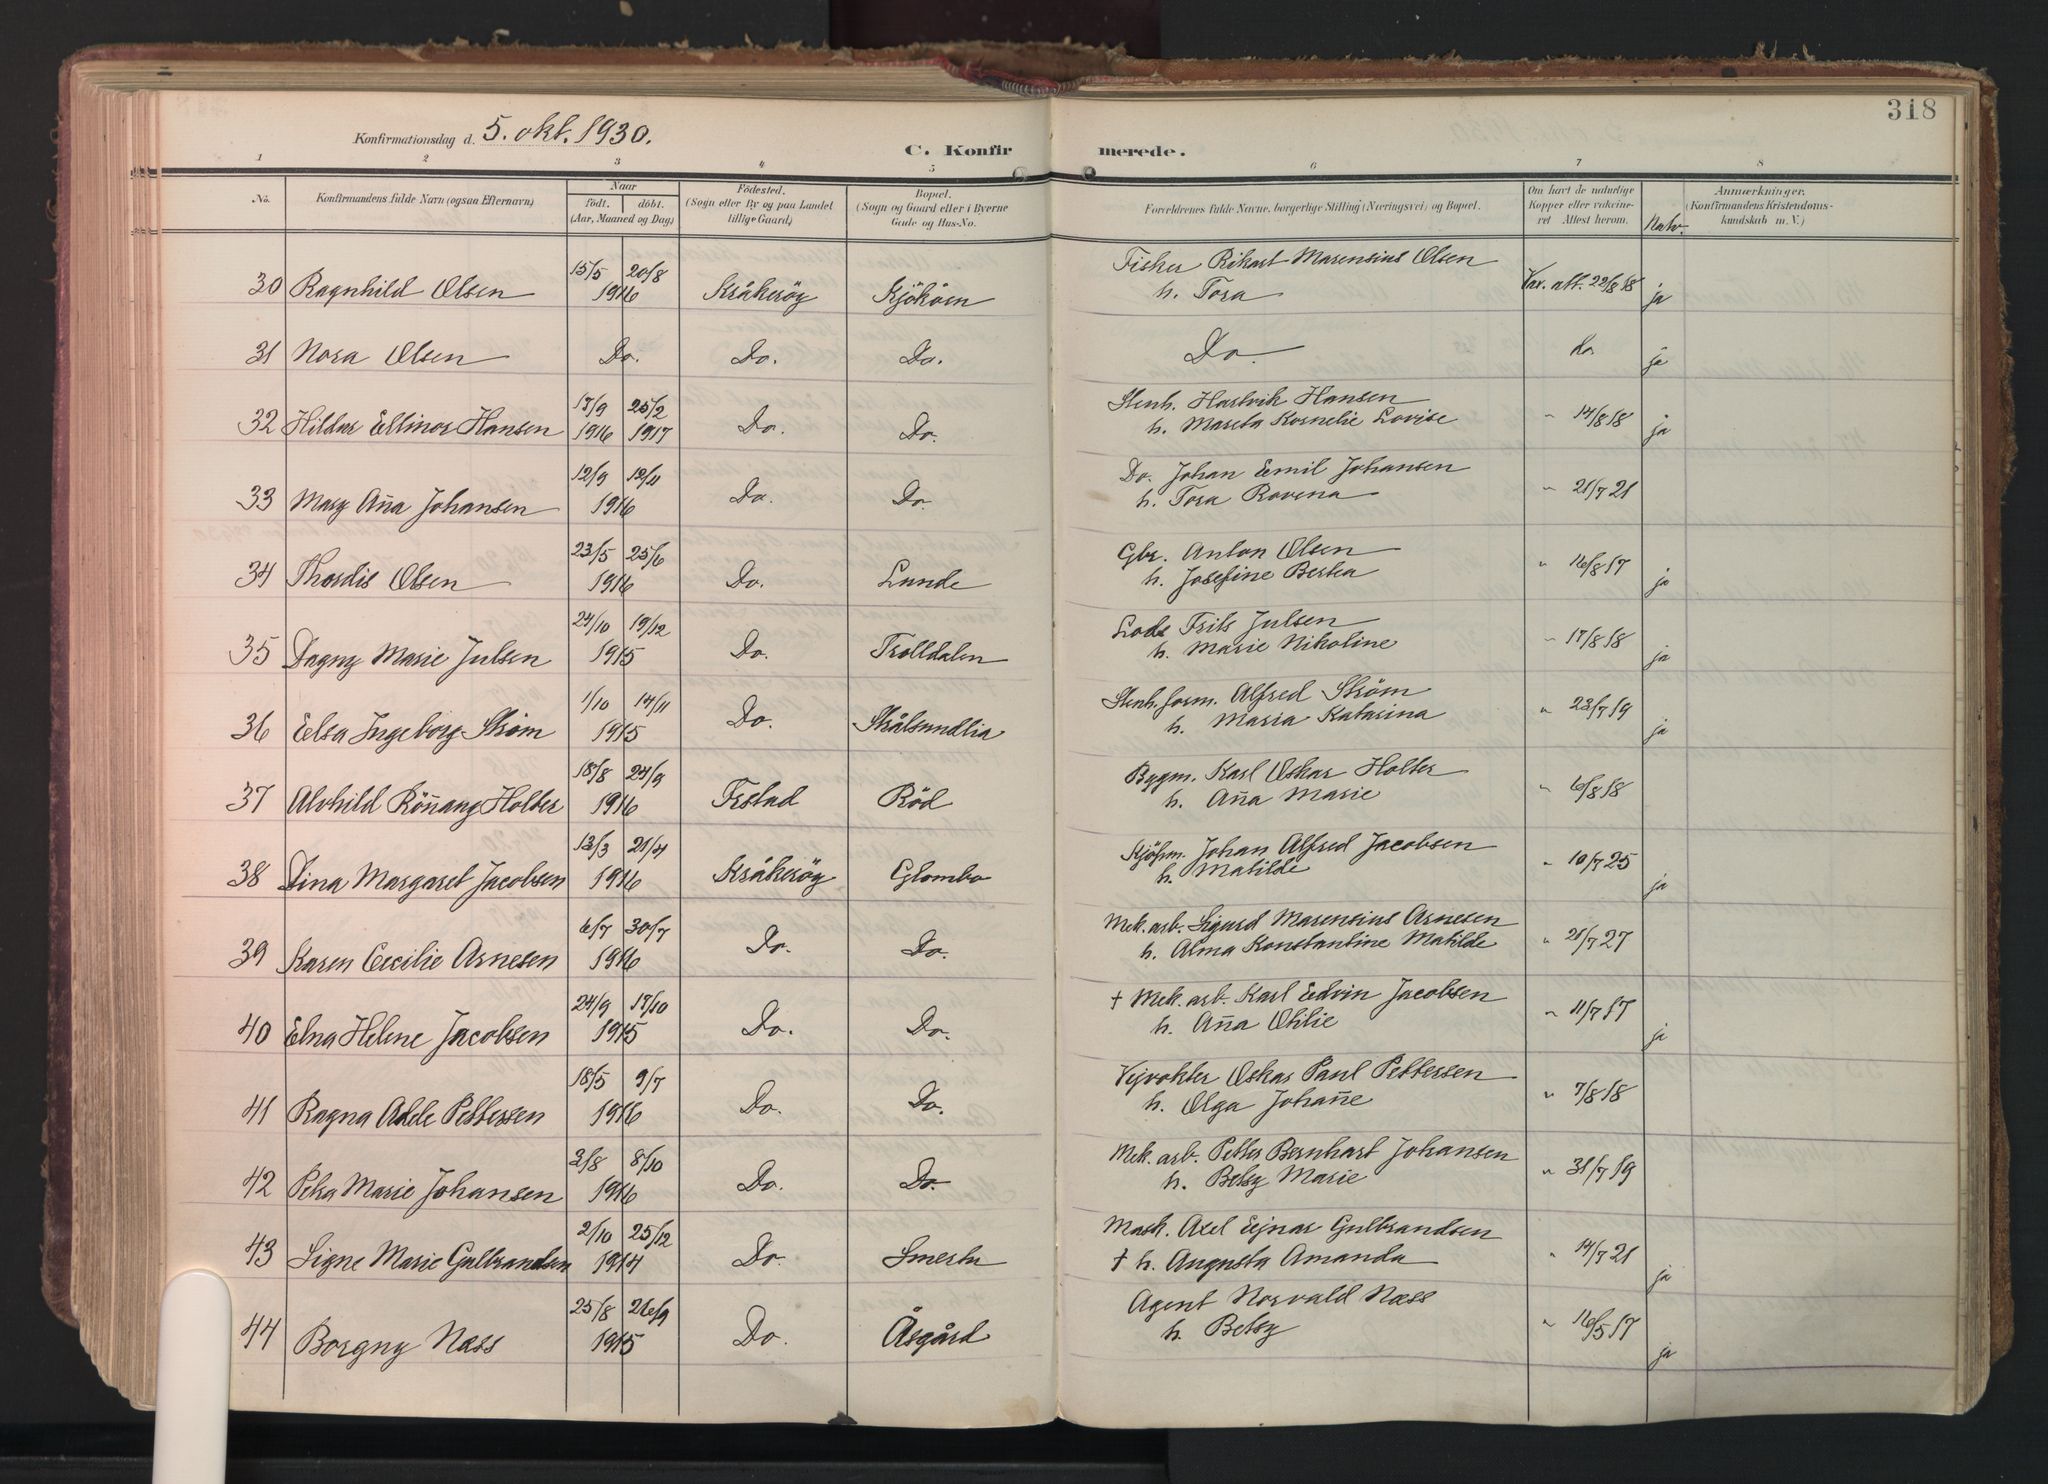 318
Konfirmationsdag d. 5. okt. 1930.
C. Konfirmerede.
1 2 3 4 5 6 7 8
No. Konfirmandens fulde Navn (ogsaa Efternavn) Naar født. døbt. (Aar, Maaned og Dag) Fødested. (Sogn eller By og paa Landet tillige Gaard) Bopæl. (Sogn og Gaard eller i Byerne Gade og Hus-No. Forældrenes fulde Navne, borgerlige Stilling (Næringsvei) og Bopæl. Om havt de naturlige Kopper eller vakcineret Attest herom. Natv. Anmærkninger. (Konfirmandens Kristendomskundskab m. V.)
30 Ragnhild Olsen 15/5 20/8 1916 Kråkeröy Kjököen Fisker Rikart Marensius Olsen h. Tora Vax. att. 22/8 18 ja
31 Nora Olsen Do. Do. Do. Do Do ja
32 Hildur Ellinor Hansen 17/9 1916 25/2 1917 Do. Do. Stenh. Hartvik Hansen h. Mareta Kornelie Lovise " 14/8 18 ja
33 Mary Anna Johansen 12/9 12/11 1916 Do. Do. Do. Johan Eemil Johansen h. Tora Rovena " 21/7 21
34 Thordis Olsen 23/5 25/6 1916 Do. Lunde Gbr. Anton Olsen h. Josefine Berta " 16/8 17 ja
35 Dagny Marie Julsen 24/10 19/12 1915 Do. Trolldalen Lods Frits Julsen h. Marie Nikoline " 17/8 18 ja
36 Elsa Ingeborg Strøm 1/10 14/11 1915 Do. Stålsundlia Stenh. form. Alfred Strøm h. Maria Katarina " 23/7 19 ja
37 Alvhild Rönnang Holter 18/8 24/9 1916 Frstad Röd Bygm. Karl Oskar Holter h. Anna Marie " 6/8 18
38 Dina Margaret Jacobsen 13/3 21/4 1916 Kråkeröy Glombo Kjöpm. Johan Alfred Jacobsen h. Matilde " 10/7 25 ja
39 Karen Cecilie Arnesen 6/7 30/7 1916 Do. Do. Mek. arb. Sigurd Marensius Arnesen h. Alma Konstantine Matilde " 21/7 27
40 Elna Helene Jacobsen 24/9 17/10 1915 Do. Do. † Mek. arb. Karl Edvin Jacobsen h. Anna Otilie " 11/7 17 ja
41 Ragna Adele Pettersen 18/5 9/7 1916 Do. Do. Vejvokter Oskar Paul Pettersen h. Olga Johanne " 7/8 18
42 Petra Marie Johansen 3/8 8/10 1916 Do. Do. Mek. arb. Petter Bernhart Johansen h. Betsy Marie " 31/7 19
43 Signe Marie Gulbrandsen 2/10 25/12 1914 Do. Smertu Mask. Axel Ejnar Gulbrandsen † h. Augusta Amanda " 14/7 21 ja
44 Borgny Næss 25/8 26/9 1915 Do. Åsgård Agent Norvald Næss h. Betsy " 16/5 17 ja